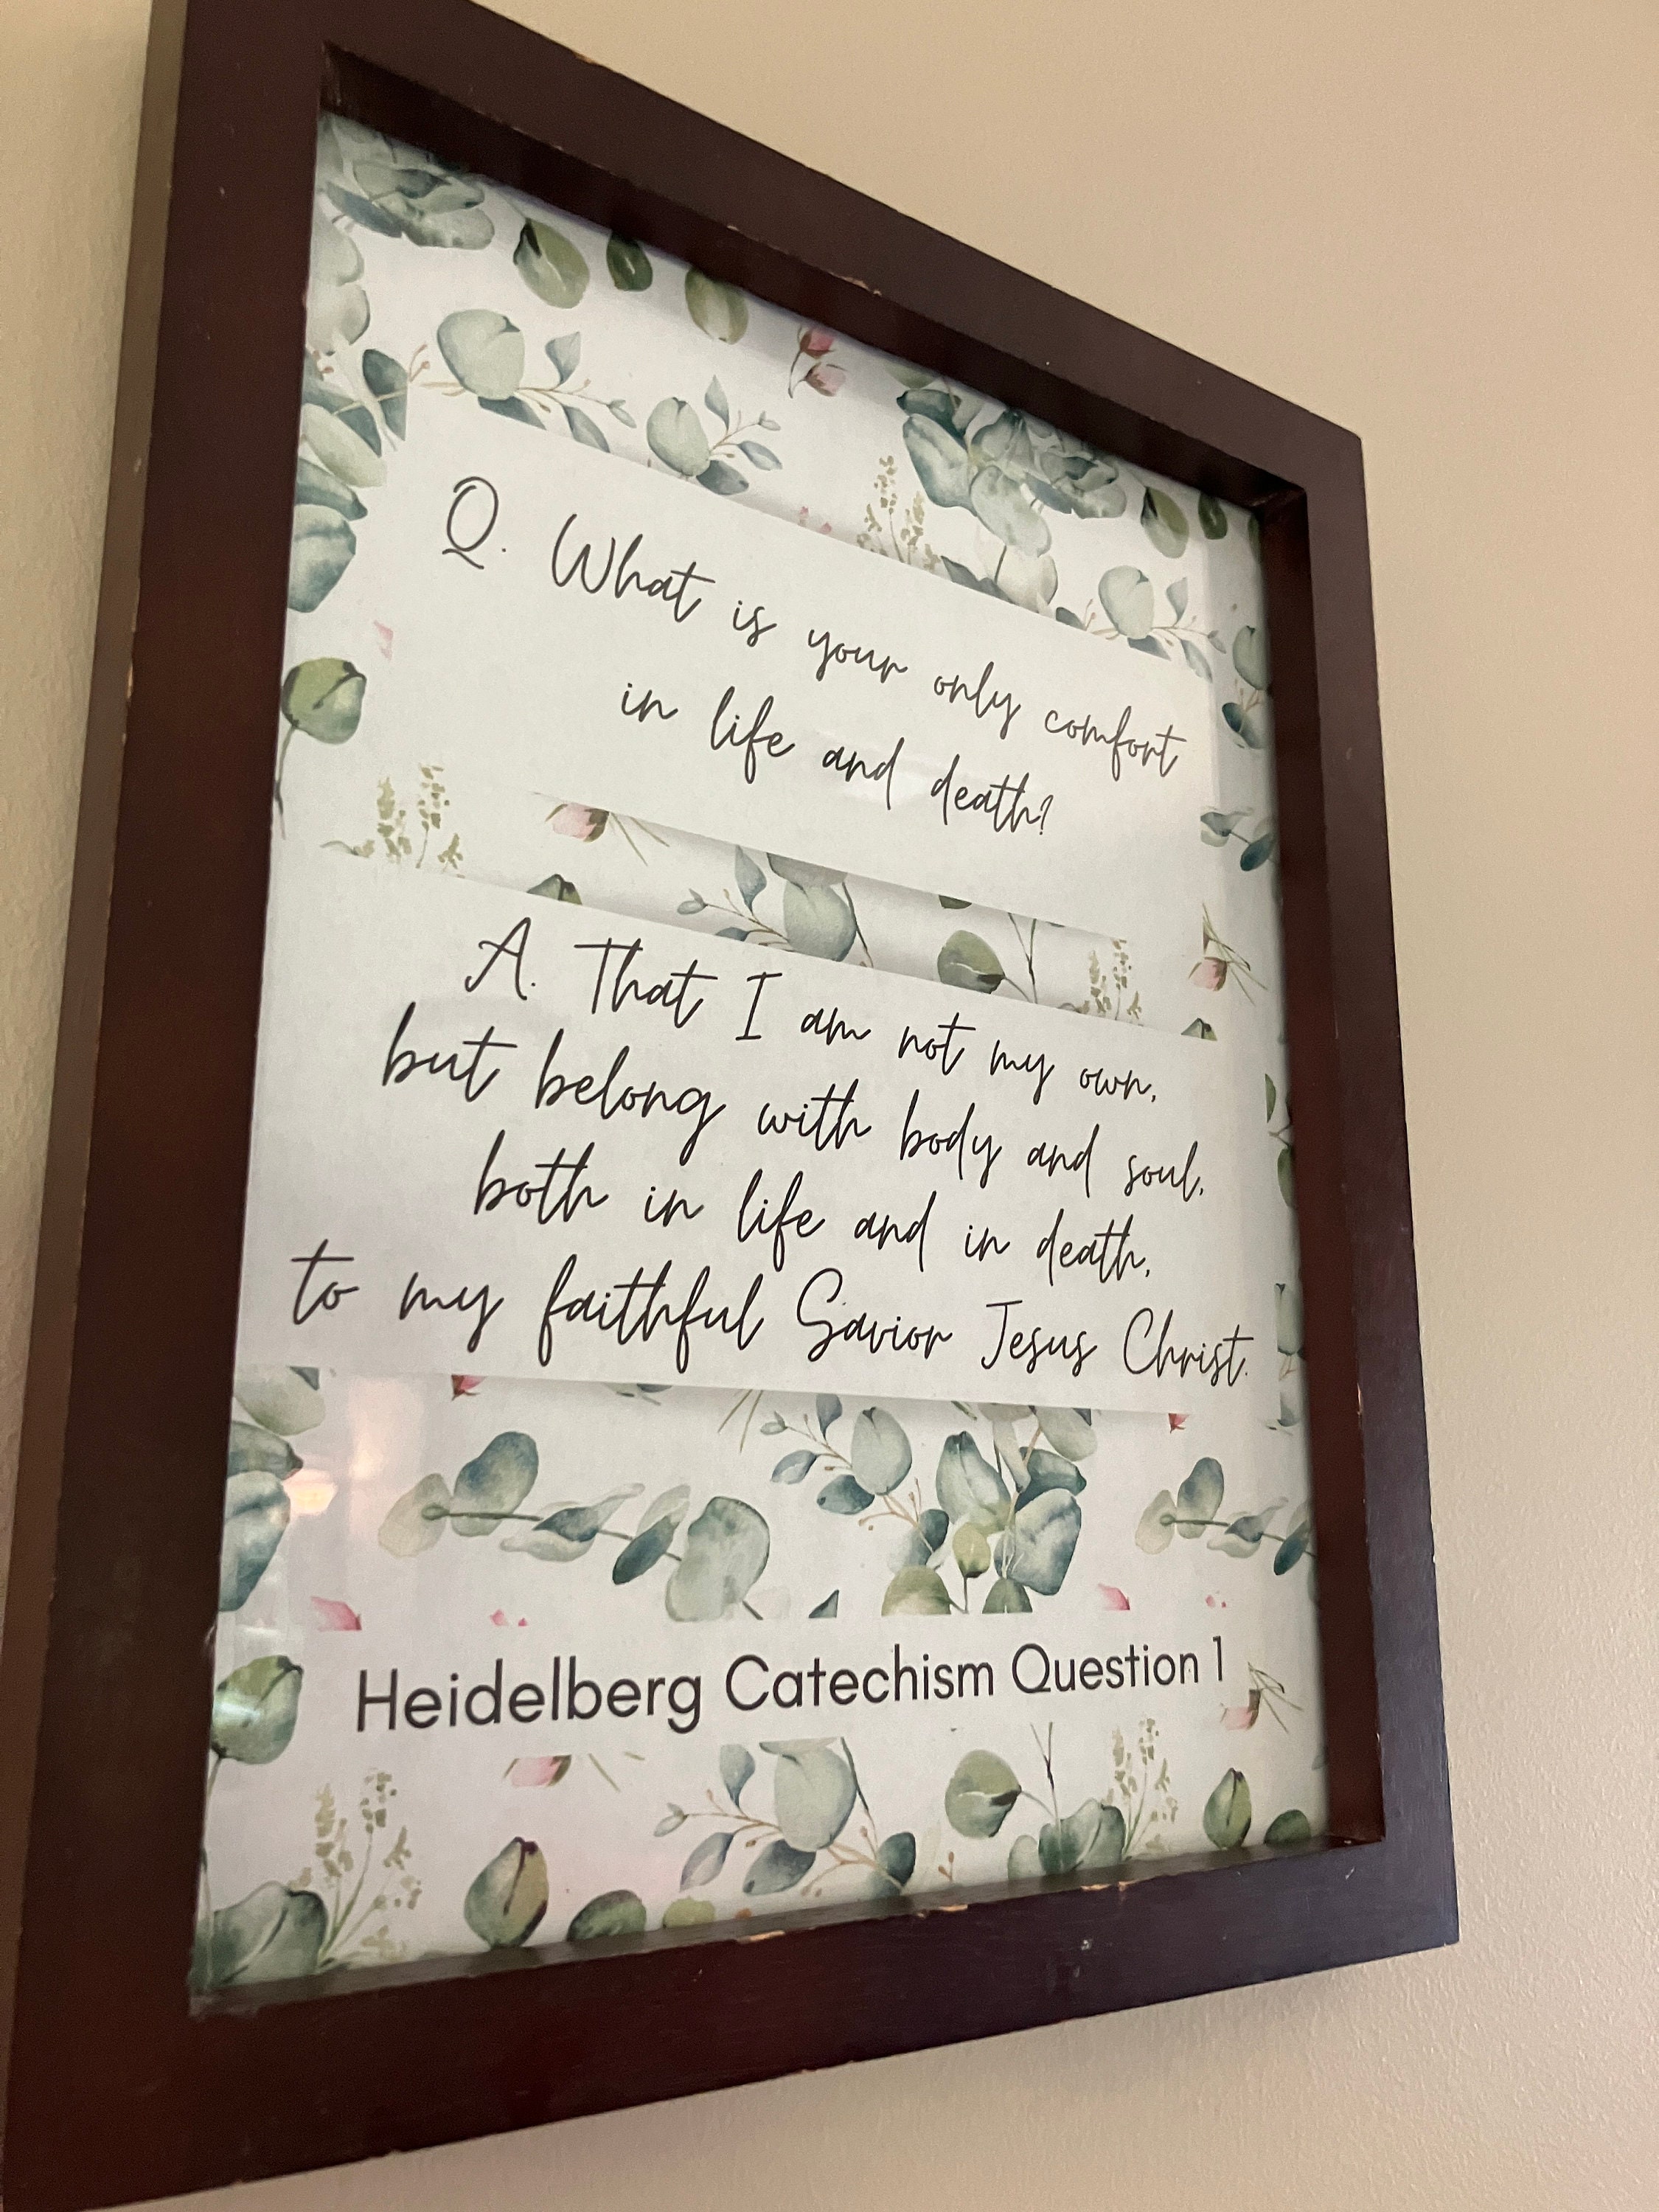 Q. What is your only comfort
in life and death?
A. That I am not my own,
but belong with body and soul,
both in life and in death,
to my faithful Savior Jesus Christ.
Heidelberg Catechism Question 1